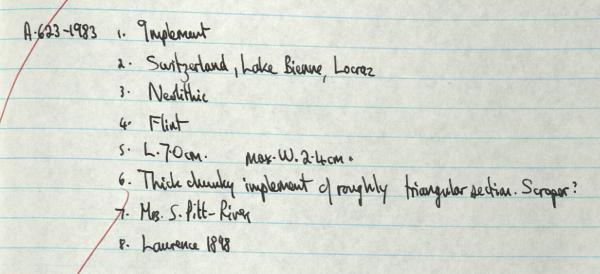 A.623-1983 1. Implement
2. Switzerland, Lake Bienne, Locraz
3. Neolithic
4. Flint
5. L.7.0cm. max.W.2.4cm.
6. Thick chunky implement of roughly triangular section. Scraper?
7. Mrs. S. Pitt-River
8. Laurence 1898